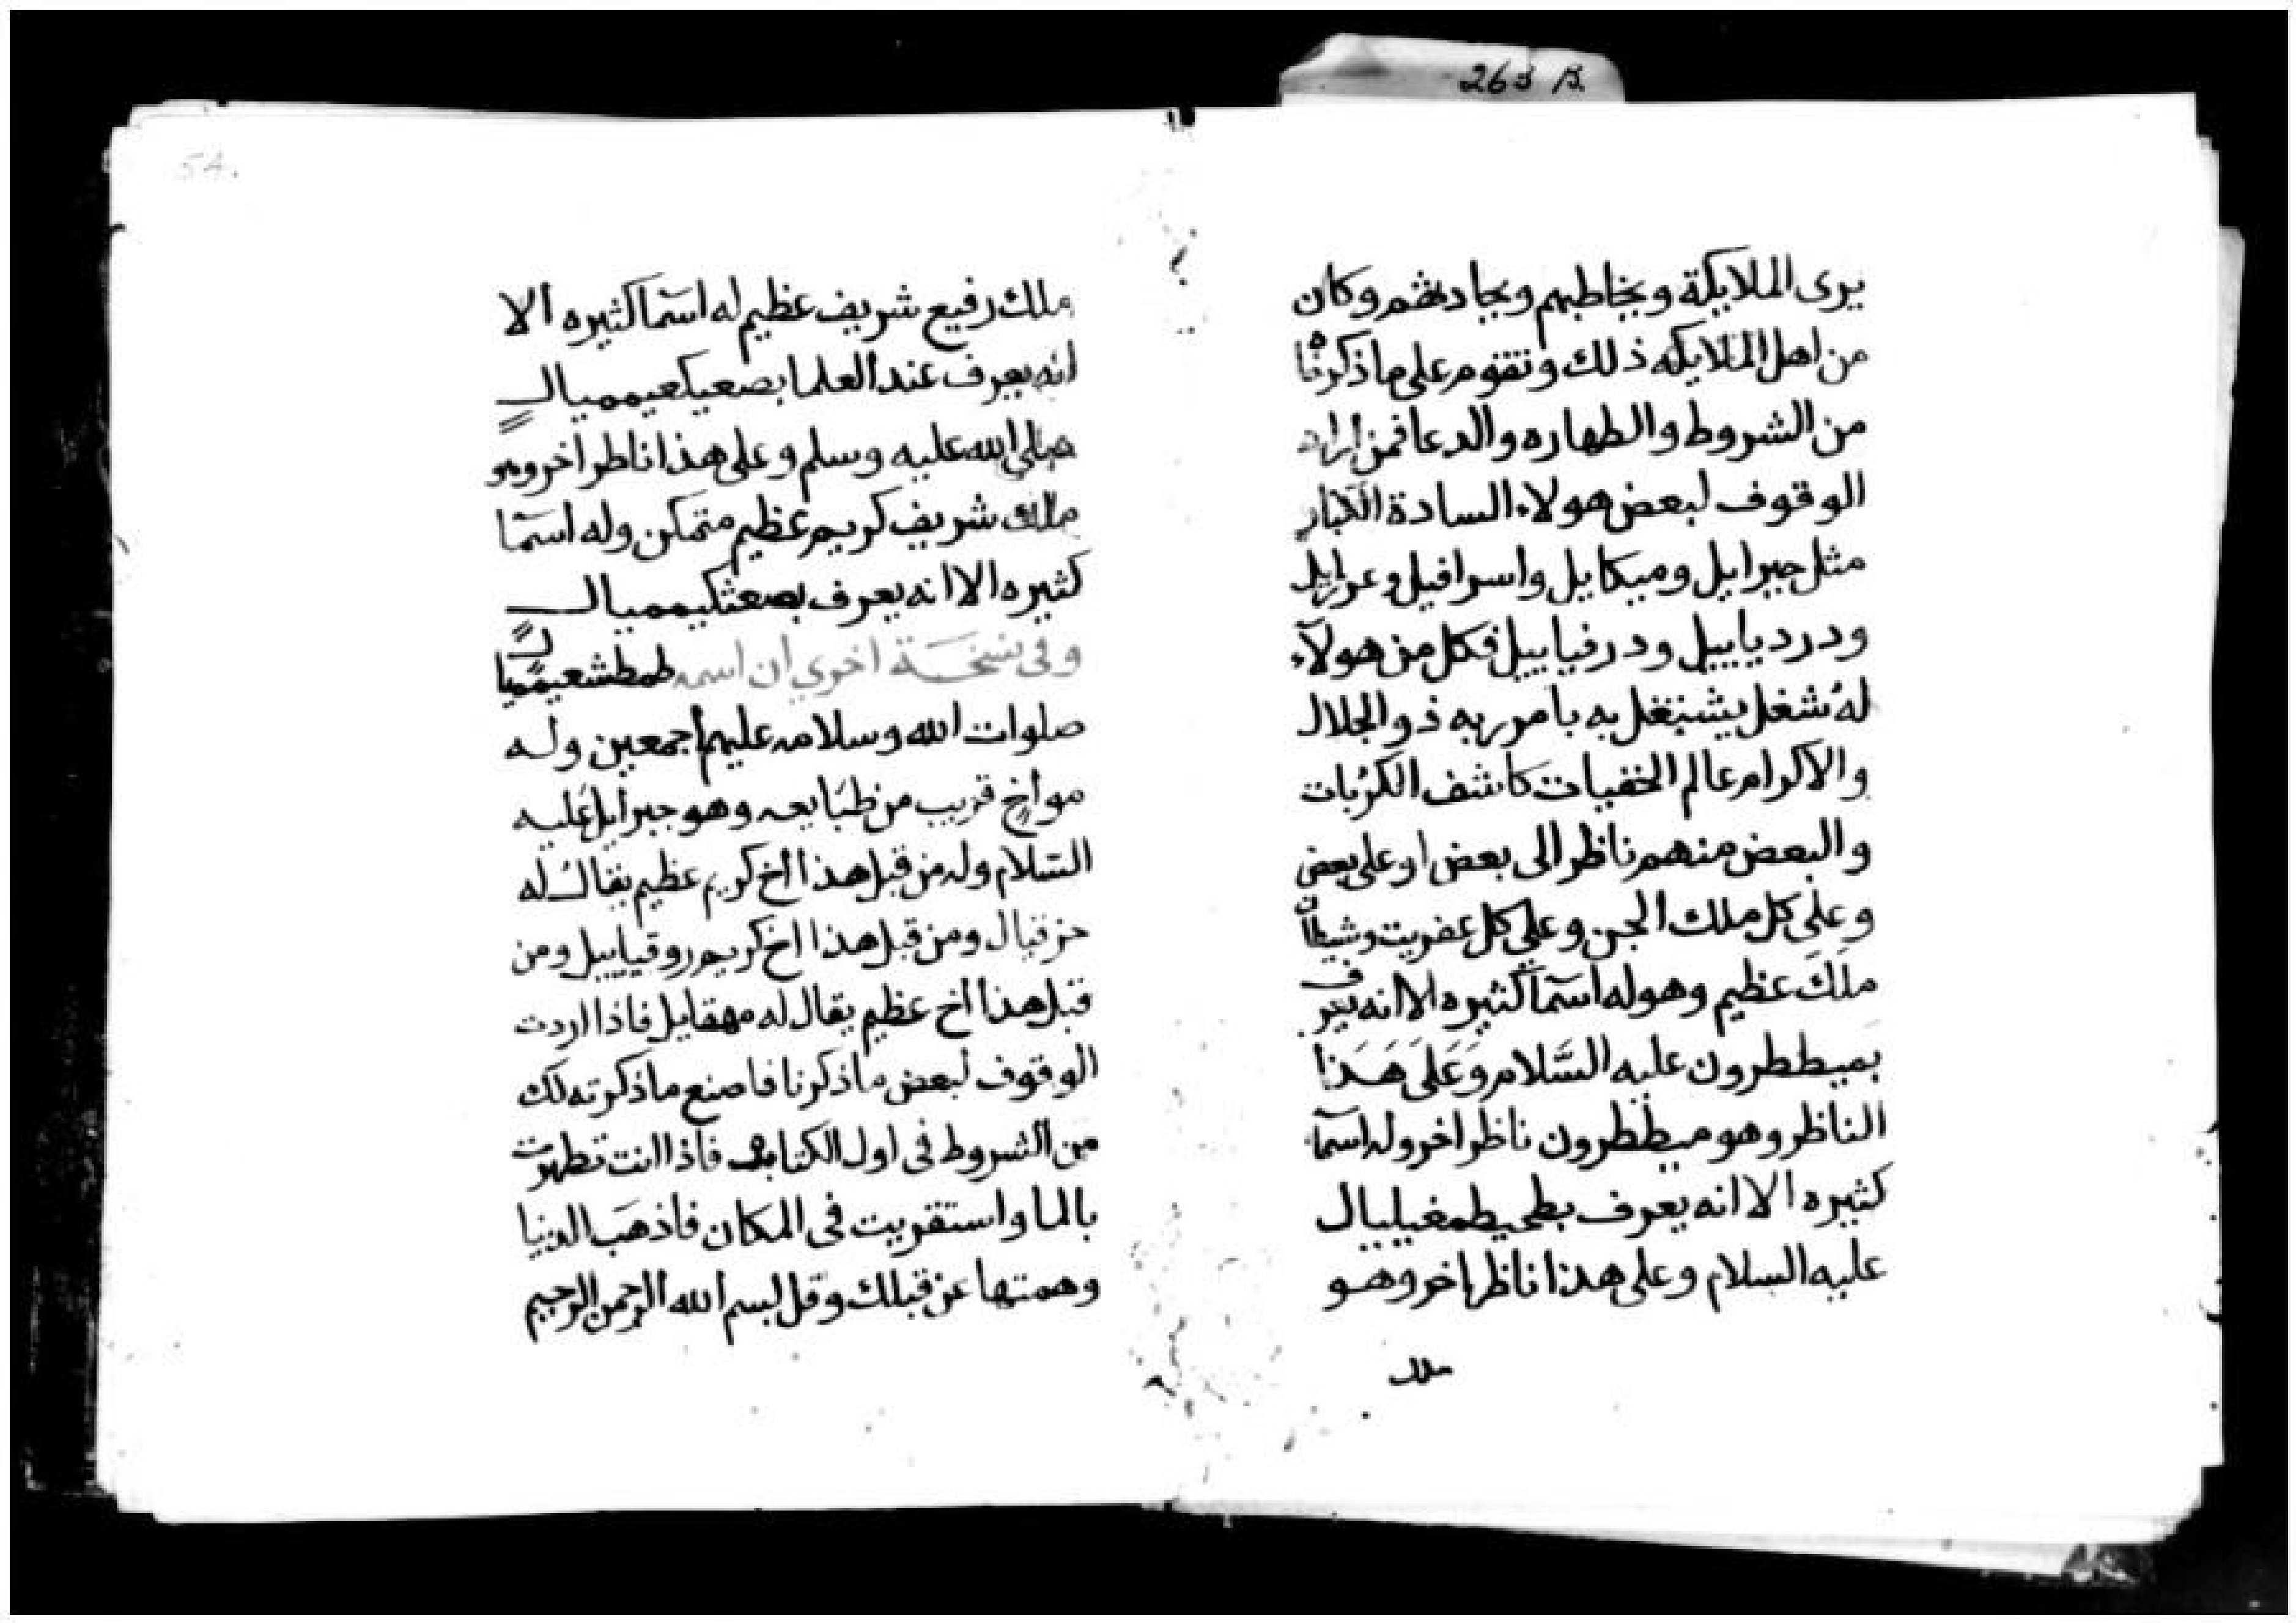 263 B.
يرى الملايكة ويخاطبهم ويحادثهم وكان
من اهل الملايكه ذلك ونتقوم على ما ذكرناه
من الشروط والطهاره والدعا فمن اراد
الوقوف لبعض هولاء السادة الكبار
مثل جبرايل وميكايل واسرافيل وعزرايل
ودردياييل ودرفياييل فكل من هولآء
لهُ شغل يشتغل به بامر ربه ذو الجلال
والاكرام عالم الخفيات كاشف الكرُبات
والبعض منهم ناظر الى بعض او على بعض
وعلى كل ملك الجن وعلي كل عفريت وشيطان
ملَكَ عظيم وهو له اسمآ كثيره الا انه يعرف
بميططرون عليه السَّلام وَعَلىَ هَذا
الناظر وهو ميططرون ناظر اخر وله اسمآ
كثيره الا انه يعرف بطحيطمغيليال
عليه السلام وعلى هذا ناظر اخر وهو
ملك
54.
ملك رفيع شريف عظيم له اسمآ كثيره الا
انه يعرف عند العلما بصعيكعيمميال
صلى الله عليه وسلم وعلى هذا ناظر اخر وهو
ملك شريف كريم عظيم متمكن وله اسمآ
كثيره الا انه يعرف بصعثكيمميال
وفى نسخة اخري ان اسمه طمطشعيمميال
صلوات الله وسلامه عليهم اجمعين وله
مواخٍ قريب من طبَايعه وهو جبرايل عَليه
السَّلام وله من قبل هذا اخ كريم عظيم يقالُ له
حزقيال ومن قبل هذا اخ كريم روقياييل ومن
قبل هذا اخ عظيم يقال له مهقايل فاذا اردت
الوقوف لبعض ما ذكرنا فاصنع ما ذكرته لك
من الشروط فى اول الكتاب فاذا انت تطهرت
بالما واستقريت فى المكان فاذهبَ الدنيا
وهمتها عن قبلك وقل بسم الله الرحمن الرحيم